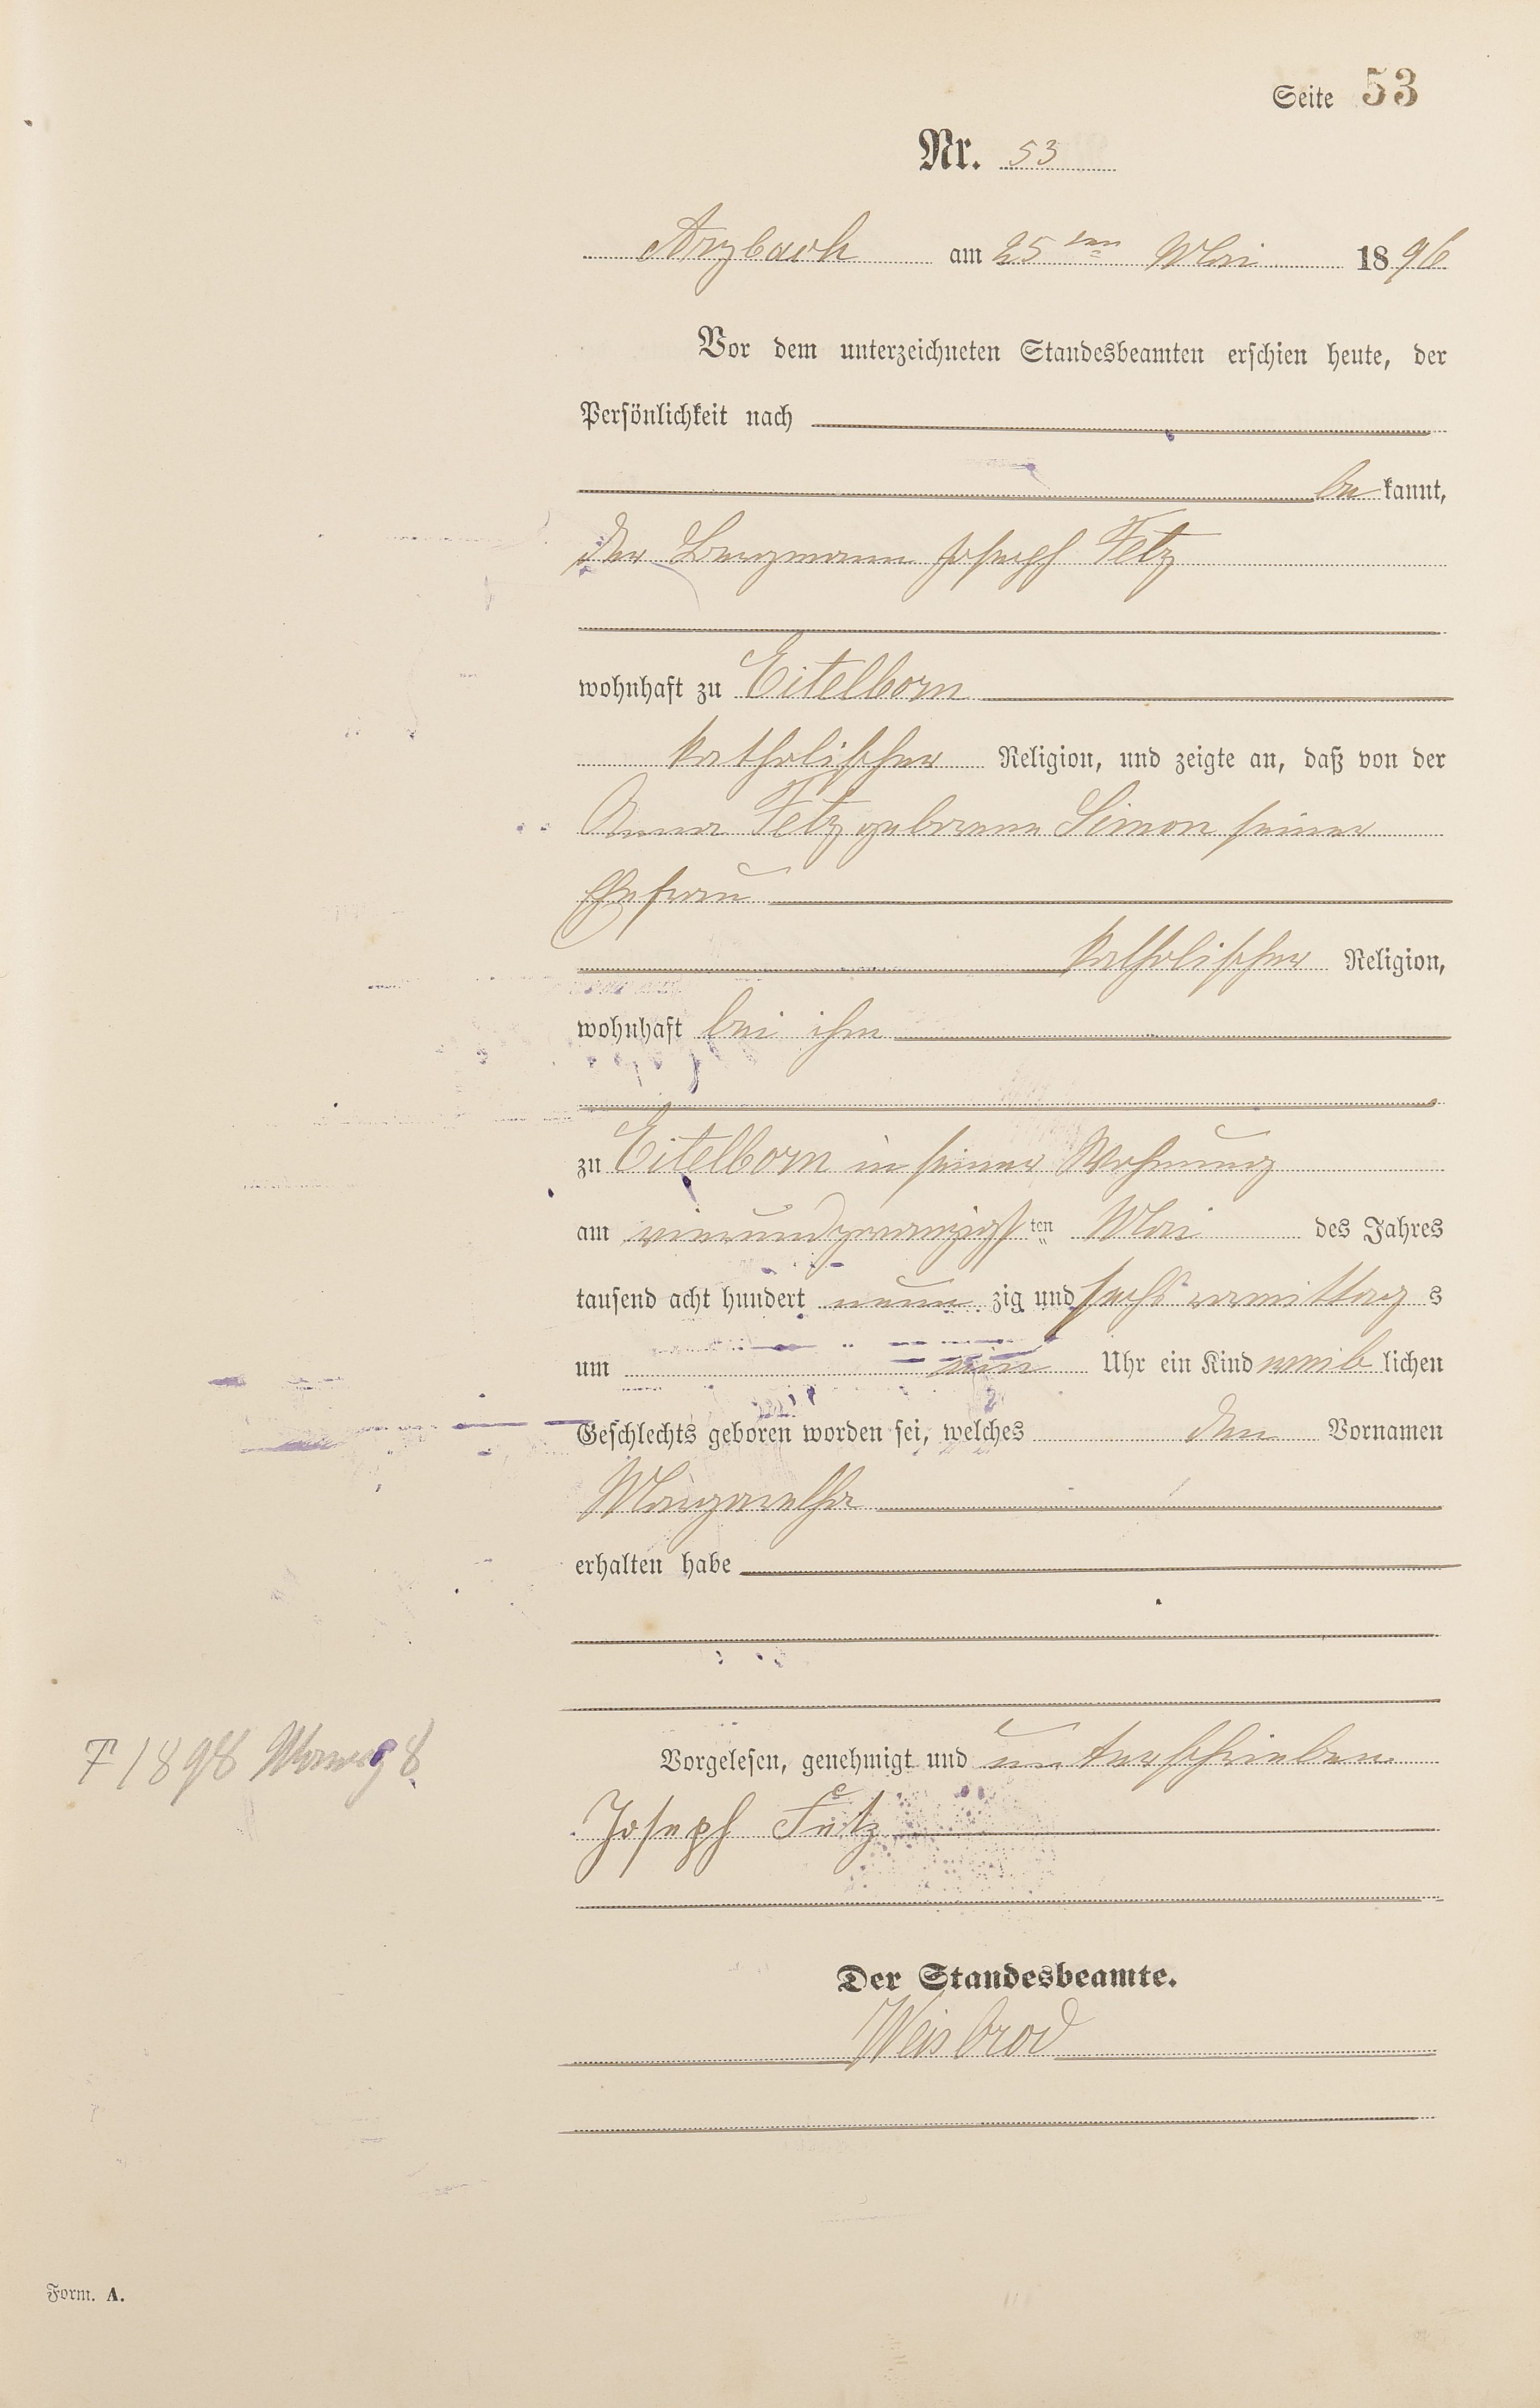 Seite 53
Nr. 53
Arzbach am 25ten Mai 1896
Vor dem unterzeichneten Standesbeamten erschien heute, der
Persönlichkeit nach
be kannt,
der Bergmann Joseph Fetz
wohnhaft zu Eitelborn
katholischer Religion, und zeigte an, daß von der
Anna Fetz geborene Simon seiner
Ehefrau
katholischer Religion,
wohnhaft bei ihm
zu Eitelborn in seiner Wohnung
am vierundzwanzigsten Mai des Jahres
tausend acht hundert neun zig und sechs vormittag s
um Uhr ein Kind weib lichen
Geschlechts geboren worden sei, welches den Vornamen
Margaretha
erhalten habe
Vorgelesen, genehmigt und unterschrieben
Joseph Fetz
Der Standesbeamte.
Weisbrod
1898 8
Form. A.